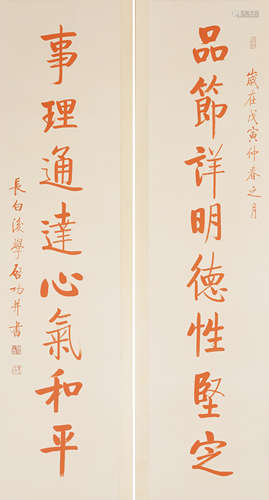 歲在戊寅仲春之月
品節詳明德性堅定
事理通達心氣和平
長白後學啓功并書